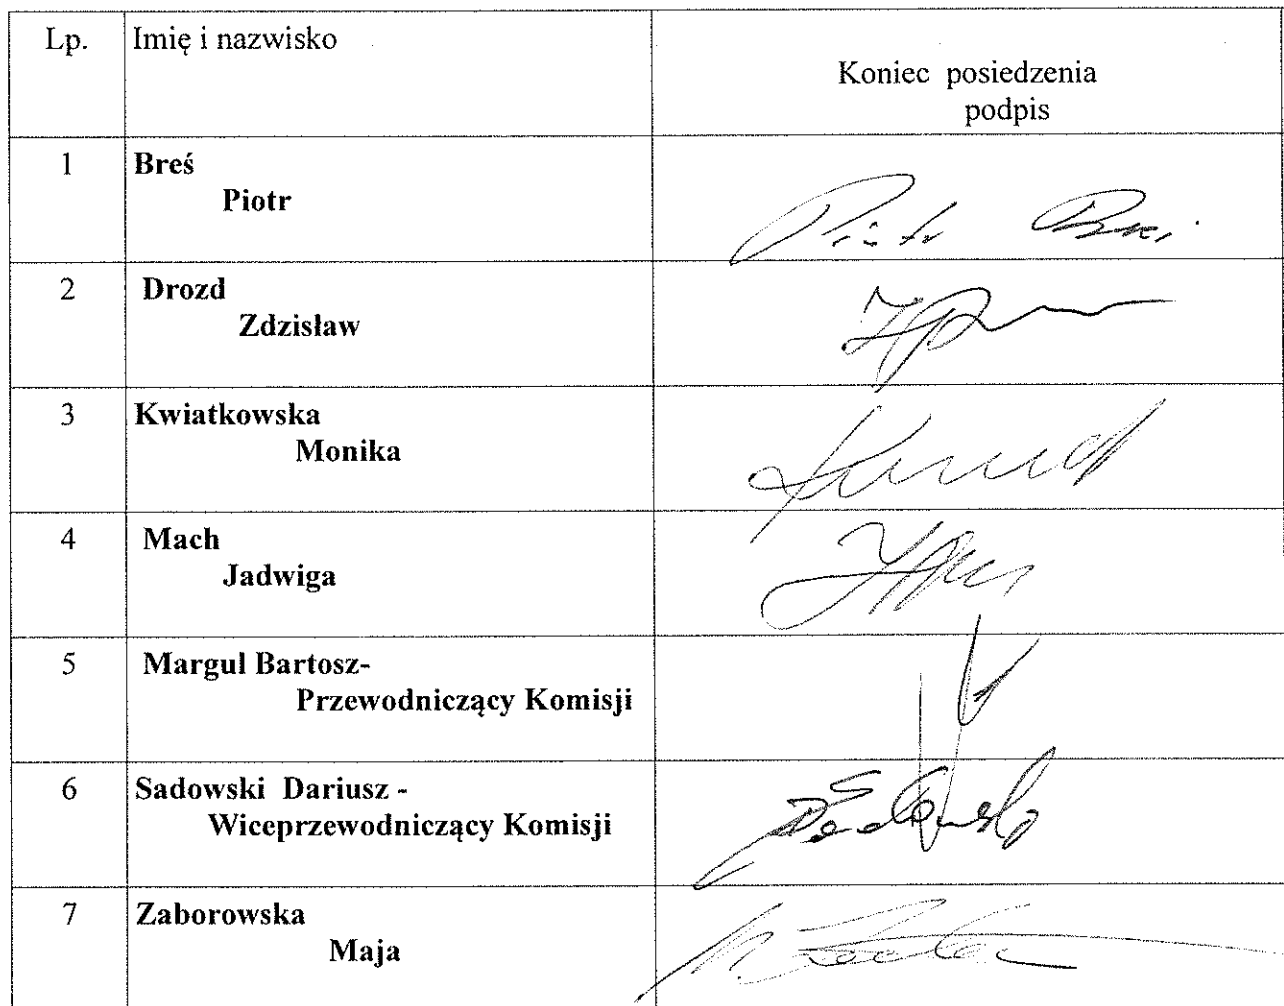 Lp. Imię i nazwisko
Koniec posiedzenia
podpis
1 Breś
Piotr
2 Drozd
Zdzisław
3 Kwiatkowska
Monika
4 Mach
Jadwiga
5 Margul Bartosz-
Przewodniczący Komisji
6 Sadowski Dariusz -
Wiceprzewodniczący Komisji
7 Zaborowska
Maja